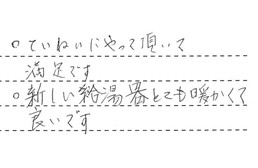 ○ ていねいにやって頂いて
満足です
○ 新しい給湯器とても暖かくて
良いです